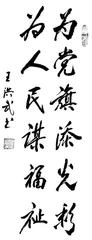 为党旗添光彩
为人民谋福祉
王洪武书